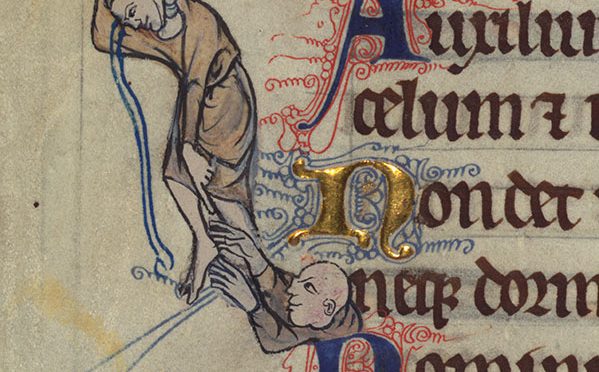 Auxiliu
celum ⁊
Non det
neqꝫ dorm
Domin